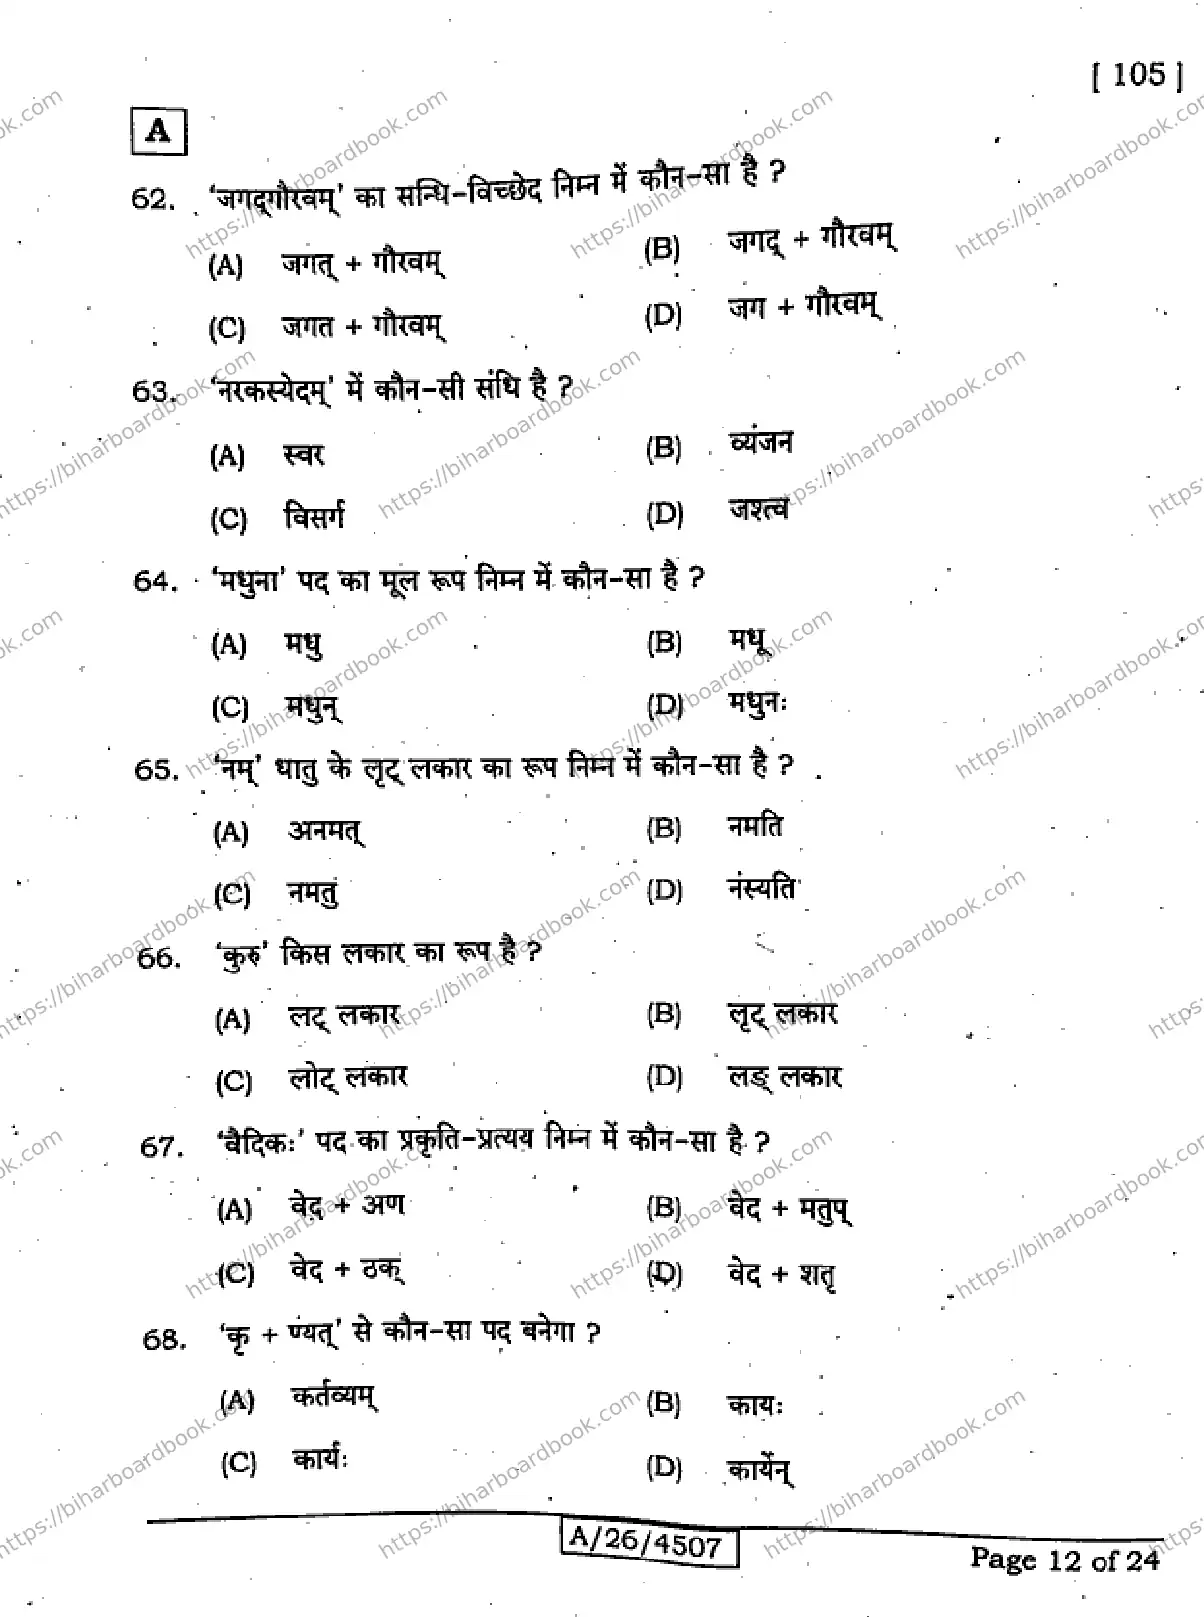 [ 105 ]
A
62. 'जगद्गौरवम्' का सन्धि-विच्छेद निम्न में कौन-सा है ?
(A) जगत् + गौरवम् (B) जगद् + गौरवम्
(C) जगत + गौरवम् (D) जग + गौरवम्
63. 'नरकस्येदम्' में कौन-सी संधि है ?
(A) स्वर (B) व्यंजन
(C) विसर्ग (D) जश्त्व
64. 'मधुना' पद का मूल रूप निम्न में कौन-सा है ?
(A) मधु (B) मधू
(C) मधुन् (D) मधुनः
65. 'नम्' धातु के लृट् लकार का रूप निम्न में कौन-सा है ?
(A) अनमत् (B) नमति
(C) नमतु (D) नंस्यति
66. 'कुरु' किस लकार का रूप है ?
(A) लट् लकार (B) लृट् लकार
(C) लोट् लकार (D) लङ् लकार
67. 'वैदिकः' पद का प्रकृति-प्रत्यय निम्न में कौन-सा है ?
(A) वेद + अण (B) वेद + मतुप्
(C) वेद + ठक् (D) वेद + शतृ
68. 'कृ + ण्यत्' से कौन-सा पद बनेगा ?
(A) कर्तव्यम् (B) कायः
(C) कार्यः (D) कार्येन्
A/26/4507
Page 12 of 24
https://biharboardbook.com